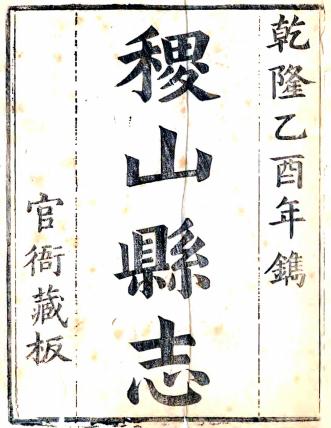 乾隆乙酉年鐫
稷山縣志
官衙藏板